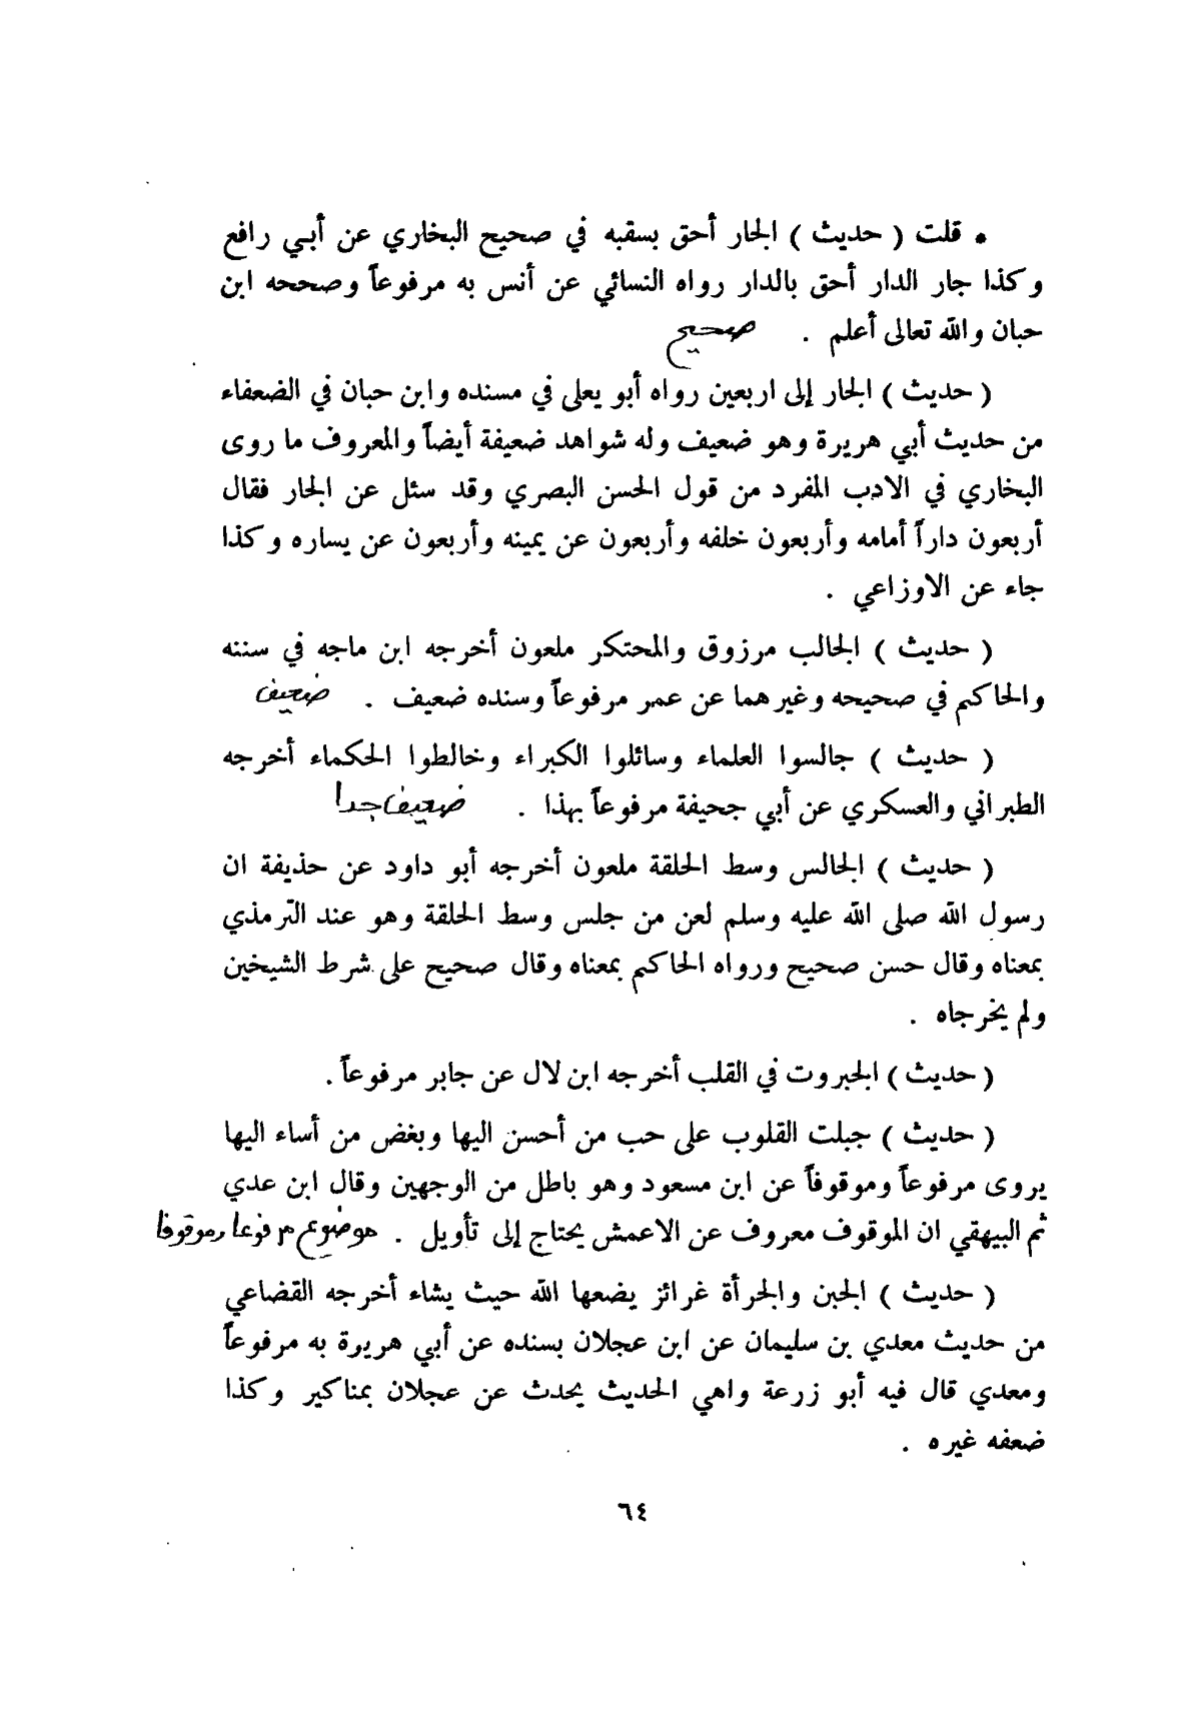 • قلت ( حديث ) الجار أحق بسقبه في صحيح البخاري عن أبي رافع
وكذا جار الدار أحق بالدار رواه النسائي عن أنس به مرفوعاً وصححه ابن
حبان والله تعالى أعلم . صحيح
( حديث ) الجار إلى اربعين رواه أبو يعلى في مسنده وابن حبان في الضعفاء
من حديث أبي هريرة وهو ضعيف وله شواهد ضعيفة أيضاً والمعروف ما روى
البخاري في الادب المفرد من قول الحسن البصري وقد سئل عن الجار فقال
أربعون داراً أمامه وأربعون خلفه وأربعون عن يمينه وأربعون عن يساره وكذا
جاء عن الاوزاعي .
( حديث ) الجالب مرزوق والمحتكر ملعون أخرجه ابن ماجه في سننه
والحاكم في صحيحه وغيرهما عن عمر مرفوعاً وسنده ضعيف . ضعيف
( حديث ) جالسوا العلماء وسائلوا الكبراء وخالطوا الحكماء أخرجه
الطبراني والعسكري عن أبي جحيفة مرفوعاً بهذا . ضعيف جدا
( حديث ) الجالس وسط الحلقة ملعون أخرجه أبو داود عن حذيفة ان
رسول الله صلى الله عليه وسلم لعن من جلس وسط الحلقة وهو عند الترمذي
بمعناه وقال حسن صحيح ورواه الحاكم بمعناه وقال صحيح على شرط الشيخين
ولم يخرجاه .
( حديث ) الجبروت في القلب أخرجه ابن لال عن جابر مرفوعاً .
( حديث ) جبلت القلوب على حب من أحسن اليها وبغض من أساء اليها
يروى مرفوعاً وموقوفاً عن ابن مسعود وهو باطل من الوجهين وقال ابن عدي
ثم البيهقي ان الموقوف معروف عن الاعمش يحتاج إلى تأويل . موضوع مرفوعا وموقوفا
( حديث ) الجبن والجرأة غرائز يضعها الله حيث يشاء أخرجه القضاعي
من حديث معدي بن سليمان عن ابن عجلان بسنده عن أبي هريرة به مرفوعاً
ومعدي قال فيه أبو زرعة واهي الحديث يحدث عن عجلان بمناكير وكذا
ضعفه غيره .
٦٤